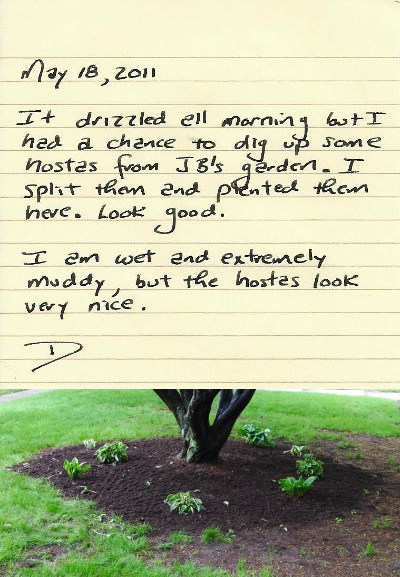 May 18, 2011
It drizzled all morning but I
had a chance to dig up some
hostas from JB's garden. I
split them and planted them
here. Look good.
I am wet and extremely
muddy, but the hostas look
very nice.
D